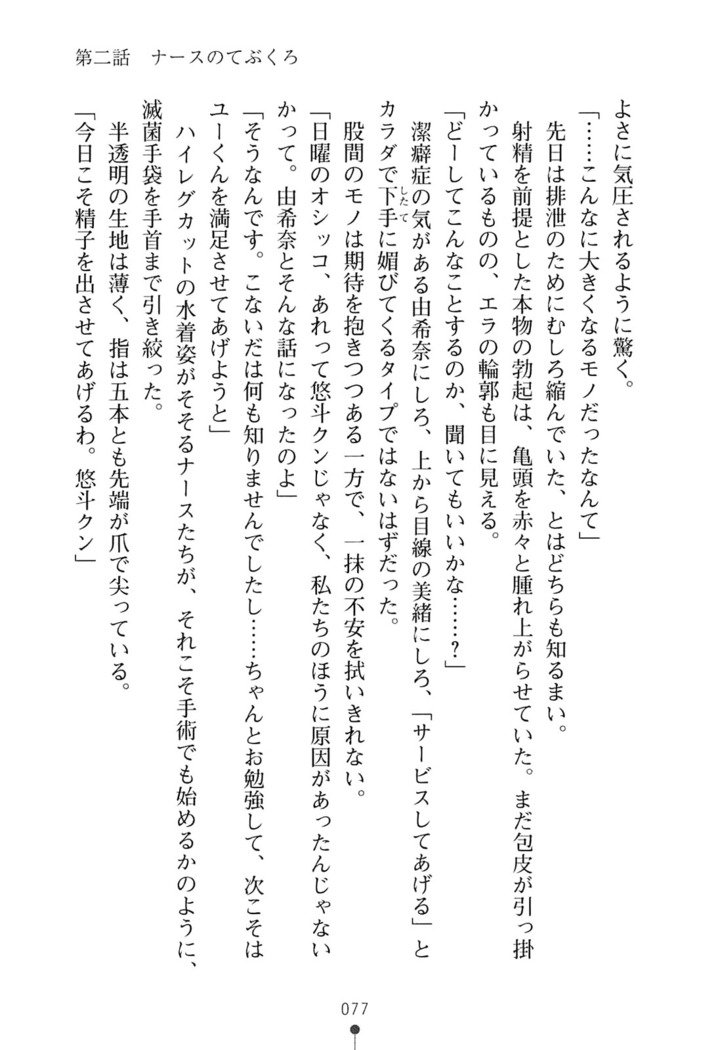 第二話　ナースのてぶくろ
よさに気圧されるように驚く。
「……こんなに大きくなるモノだったなんて」
先日は排泄のためにむしろ縮んでいた、とはどちらも知るまい。
射精を前提とした本物の勃起は、亀頭を赤々と腫れ上がらせていた。まだ包皮が引っ掛
かっているものの、エラの輪郭も目に見える。
「どーしてこんなことするのか、聞いてもいいかな……？」
潔癖症の気がある由希奈にしろ、上から目線の美緒にしろ、「サービスしてあげる」と
カラダで下手に媚びてくるタイプではないはずだった。
したて
股間のモノは期待を抱きつつある一方で、一抹の不安を拭いきれない。
「日曜のオシッコ、あれって悠斗クンじゃなく、私たちのほうに原因があったんじゃない
かって。由希奈とそんな話になったのよ」
「そうなんです。こないだは何も知りませんでしたし……ちゃんとお勉強して、次こそは
ユーくんを満足させてあげようと」
ハイレグカットの水着姿がそそるナースたちが、それこそ手術でも始めるかのように、
滅菌手袋を手首まで引き絞った。
半透明の生地は薄く、指は五本とも先端が爪で尖っている。
「今日こそ精子を出させてあげるわ。悠斗クン」
077